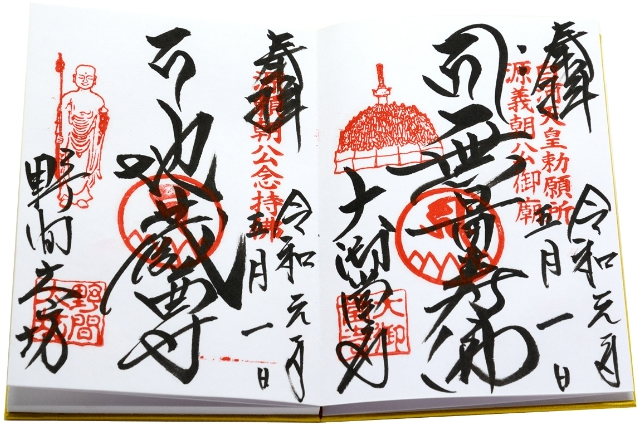 奉拝
令和元年
五月一日
白河天皇勅願所
源義朝公御廟
無量寿佛
大御堂寺
大御堂寺
奉拝
令和元年
五月一日
源頼朝公念持佛
地蔵尊
野間大坊
野間大坊